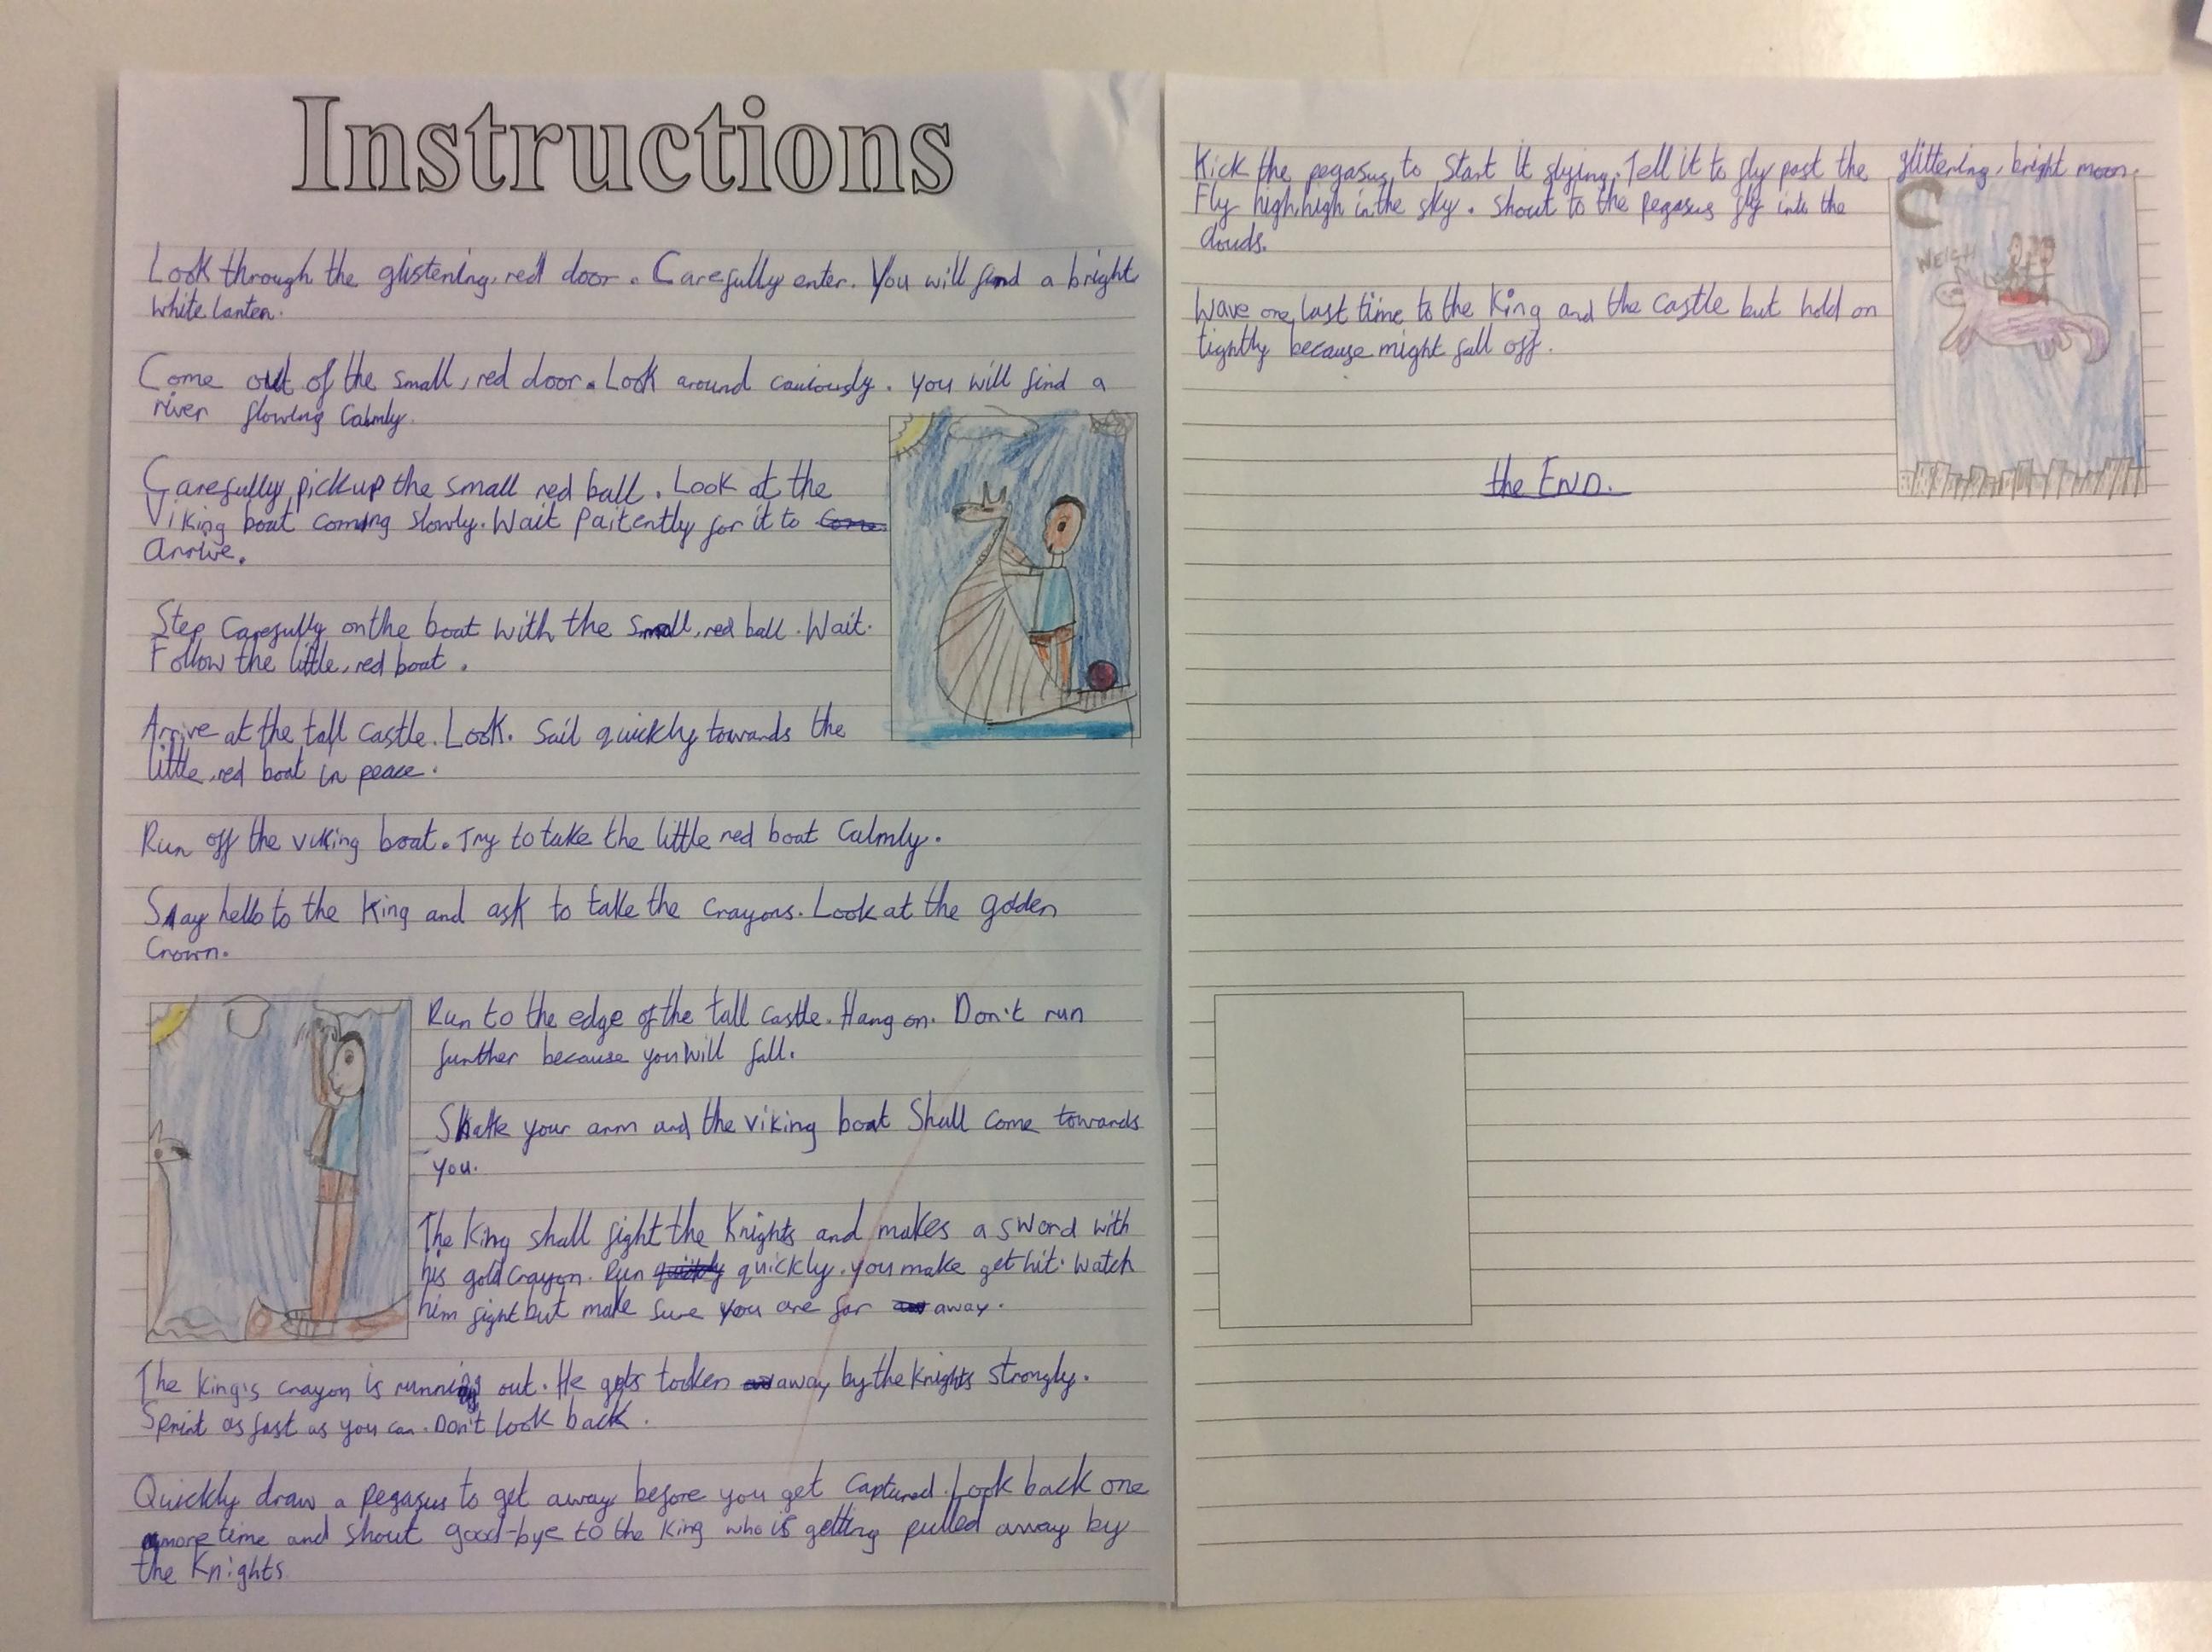 Instructions
Look through the glistening, red door. Carefully enter. You will find a bright
white lanten.
Come out of the small, red door. Look around cauiously. you will find a
river flowing calmly.
Carefully, pick up the small red ball. Look at the
Viking boat coming slowly. Wait paitently for it to
arrive.
Step carefully on the boat with the small, red ball. Wait.
Follow the little, red boat.
Arrive at the tall castle. Look. Sail quickly towards the
little, red boat in peace.
Run off the viking boat. Try to take the little red boat calmly.
Say hello to the King and ask to take the crayons. Look at the golden
crown.
Run to the edge of the tall castle. Hang on. Don't run
further because you will fall.
Shake your arm and the viking boat shall come towards
you.
The King shall fight the Knights and makes a sword with
his gold crayon. Run quickly. you make get hit. Watch
him fight but make sure you are far away.
The King's crayon is running out. He gets tooken away by the Knights strongly.
Sprint as fast as you can. Don't look back.
Quickly draw a pegasus to get away before you get captured. Look back one
more time and shout good-bye to the King who is getting pulled away by
the Knights
Kick the pegasus, to start it flying. Tell it to fly past the glittering, bright moon.
Fly high, high in the sky. Shout to the Pegasus fly into the
clouds.
WEIGH
Wave one last time to the King and the castle but hold on
tightly because might fall off.
the END.